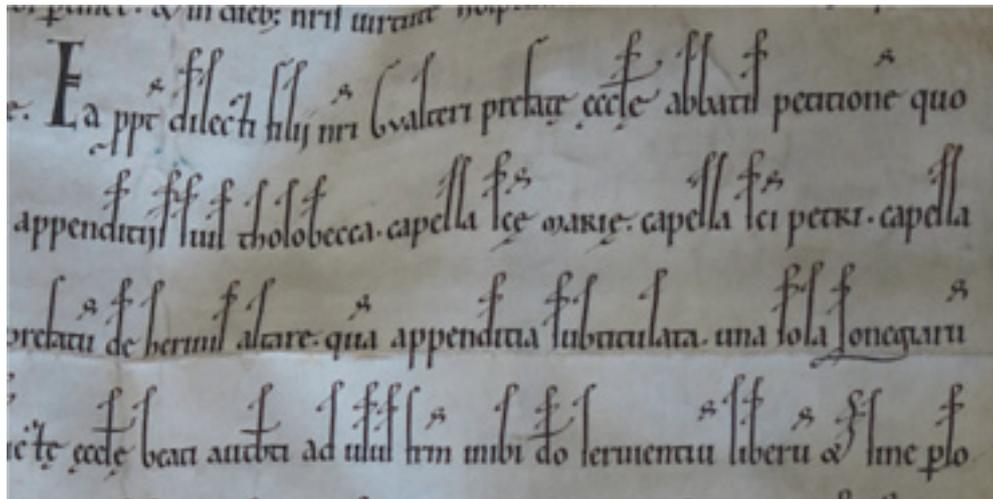 & in dieb; nris
Ea ppt dilecti filij nri Gvalteri prefatę ęccłę abbatis petitione quo
appenditijs suis tholobecca. capella scę MARIĘ. capella sci petri. capella
de altare. quā appenditia subtitulata. una sola
ęccłę beati autbti ad usus frm inibi dō seruientiū liberū & sine